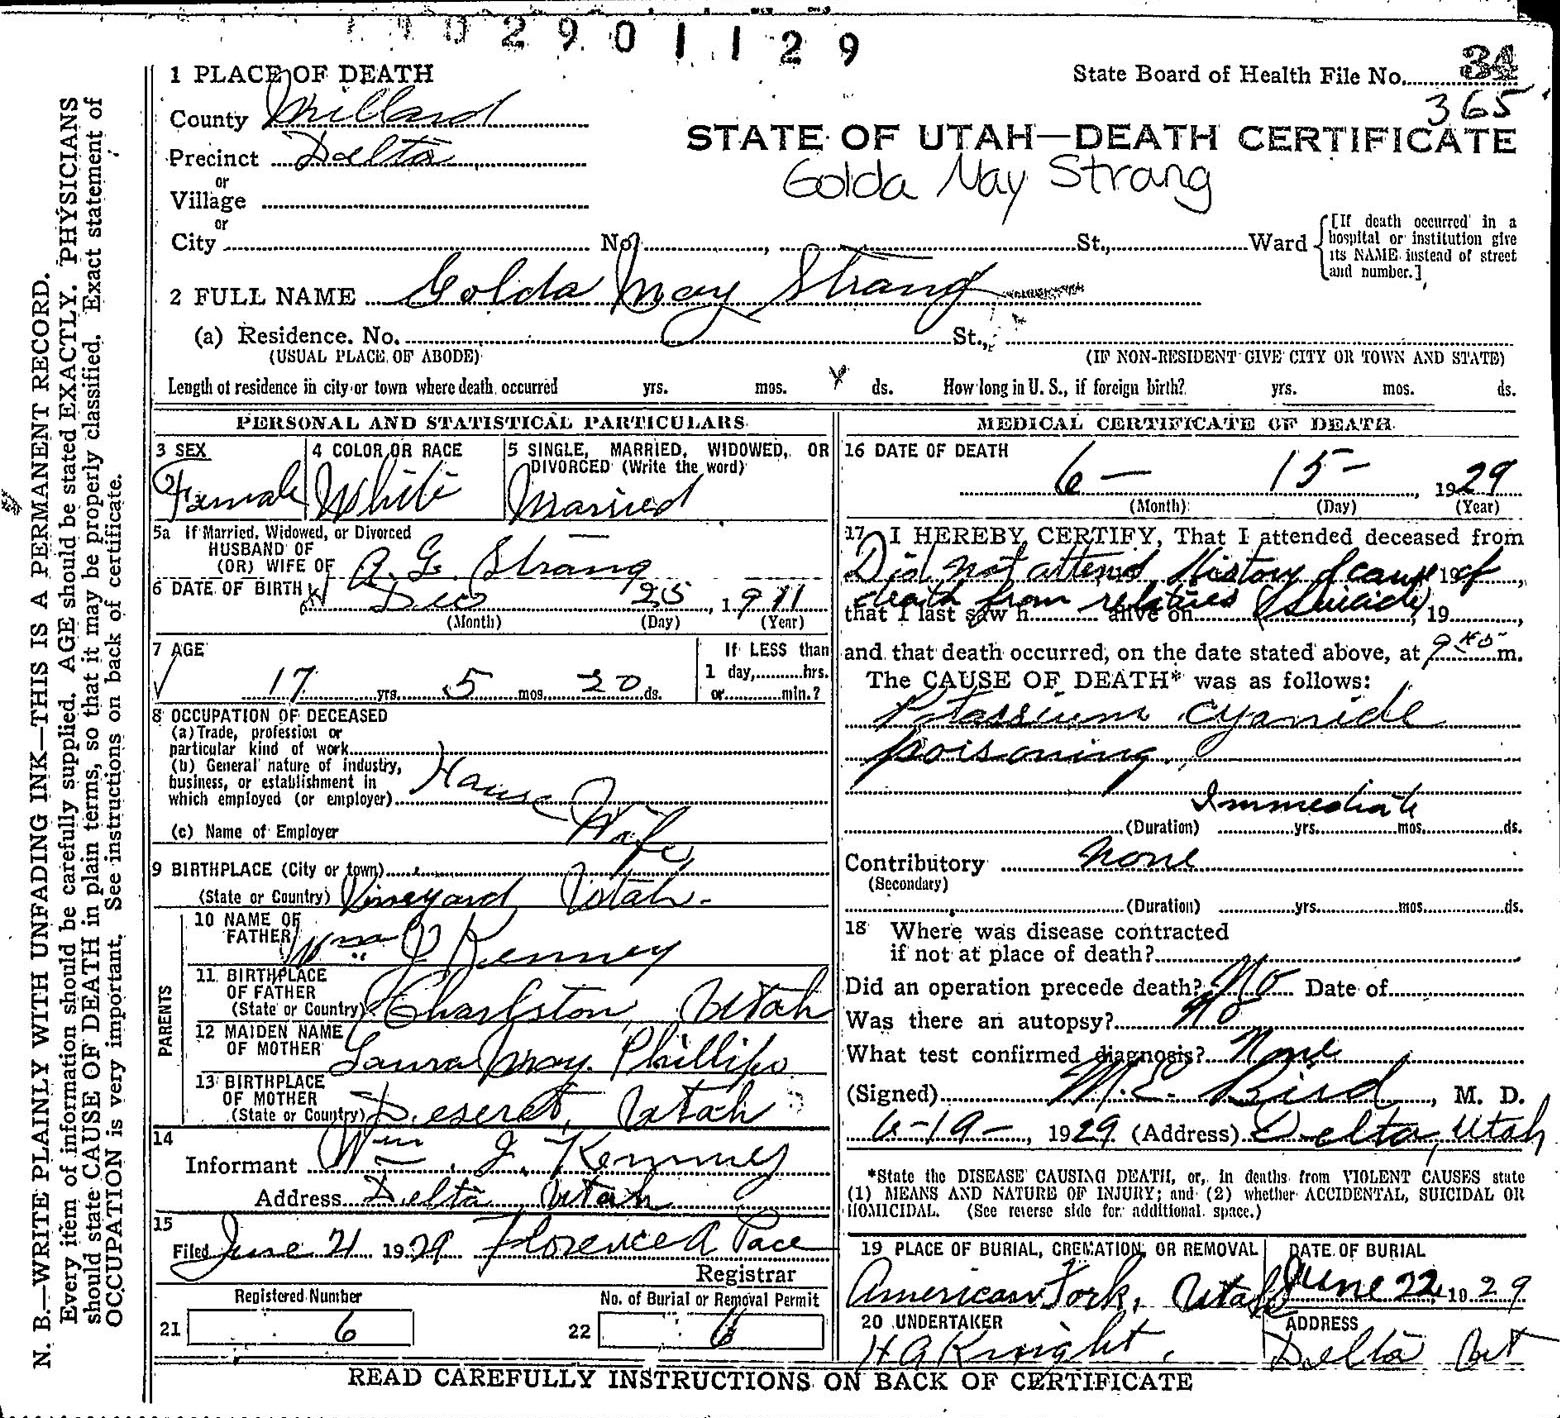 2901129
1 PLACE OF DEATH
State Board of Health File No. 34
365
County Millard
STATE OF UTAH—DEATH CERTIFICATE
Precinct Delta
Golda May Strang
or
Village
or
City No. St., Ward
[If death occurred in a hospital or institution give its NAME instead of street and number.]
2 FULL NAME Golda May Strang
(a) Residence. No. St.,
(USUAL PLACE OF ABODE) (IF NON-RESIDENT GIVE CITY OR TOWN AND STATE)
Length of residence in city or town where death occurred yrs. mos. ds. How long in U. S., if foreign birth? yrs. mos. ds.
PERSONAL AND STATISTICAL PARTICULARS
3 SEX 4 COLOR OR RACE 5 SINGLE, MARRIED, WIDOWED, OR DIVORCED (Write the word)
Female White Married
5a If Married, Widowed, or Divorced
HUSBAND OF
(OR) WIFE OF A. G. Strang
6 DATE OF BIRTH Dec 25, 1911
(Month) (Day) (Year)
7 AGE If LESS than
17 yrs. 5 mos. 20 ds. 1 day, hrs.
or min.?
8 OCCUPATION OF DECEASED
(a) Trade, profession or
particular kind of work
(b) General nature of industry,
business, or establishment in
which employed (or employer) House Wife
(c) Name of Employer
9 BIRTHPLACE (City or town)
(State or Country) Vineyard Utah.
PARENTS
10 NAME OF
FATHER Wm J Kenney
11 BIRTHPLACE
OF FATHER
(State or Country) Charlston, Utah
12 MAIDEN NAME
OF MOTHER Laura May Phillips
13 BIRTHPLACE
OF MOTHER
(State or Country) Deseret, Utah
14
Informant Wm. J. Kenney
Address Delta Utah
15
Filed June 21 1929 Florence A Pace
Registrar
Registered Number No. of Burial or Removal Permit
21 6 22 6
MEDICAL CERTIFICATE OF DEATH
16 DATE OF DEATH
6 - 15 - , 1929
(Month) (Day) (Year)
17 I HEREBY CERTIFY, That I attended deceased from
Did not attend History of cause 19 of
death from relatives (Suicide)
that I last saw h alive on , 19
and that death occurred, on the date stated above, at 9 45 m.
The CAUSE OF DEATH* was as follows:
Potassium cyanide
poisoning
Immediate
(Duration) yrs. mos. ds.
Contributory None
(Secondary)
(Duration) yrs. mos. ds.
18 Where was disease contracted
if not at place of death?
Did an operation precede death? No Date of
Was there an autopsy? No
What test confirmed diagnosis? None
(Signed) M. E. Bird, M. D.
6-19-, 1929 (Address) Delta, Utah
*State the DISEASE CAUSING DEATH, or, in deaths from VIOLENT CAUSES state
(1) MEANS AND NATURE OF INJURY; and (2) whether ACCIDENTAL, SUICIDAL OR
HOMICIDAL. (See reverse side for additional space.)
19 PLACE OF BURIAL, CREMATION, OR REMOVAL DATE OF BURIAL
American Fork, Utah June 22, 1929
20 UNDERTAKER ADDRESS
H A Knight, Delta Ut
READ CAREFULLY INSTRUCTIONS ON BACK OF CERTIFICATE
N. B.—WRITE PLAINLY WITH UNFADING INK—THIS IS A PERMANENT RECORD.
Every item of information should be carefully supplied. AGE should be stated EXACTLY. PHYSICIANS
should state CAUSE OF DEATH in plain terms, so that it may be properly classified. Exact statement of
OCCUPATION is very important. See instructions on back of certificate.